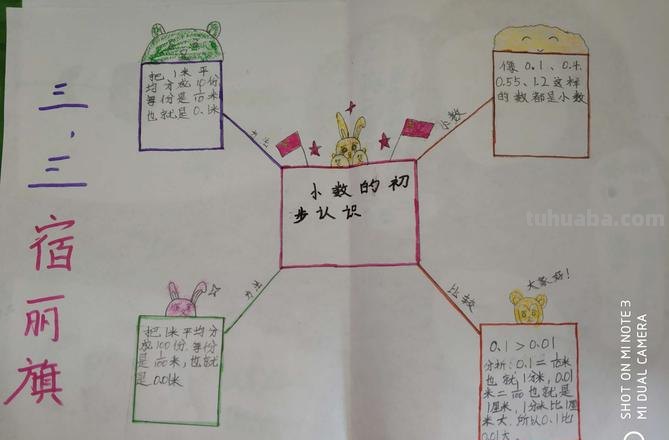 三.三
宿丽旗
把1米平
均分成10份
每份是1/10米
也就是0.1米
方法
小数
像0.1、0.4
0.55、1.2这样
的数都是小数
小数的初
步认识
方法
把1米平均分
成100份.每份
是1/100米,也就
是0.01米
比较
大家好!
0.1>0.01
分析:0.1=1/10米
也就1分米,0.01
米=1/100也就是
1厘米,1分米比1厘
米大.所以0.1比
0.01大.
tuhuaba.com
SHOT ON MI NOTE 3
MI DUAL CAMERA